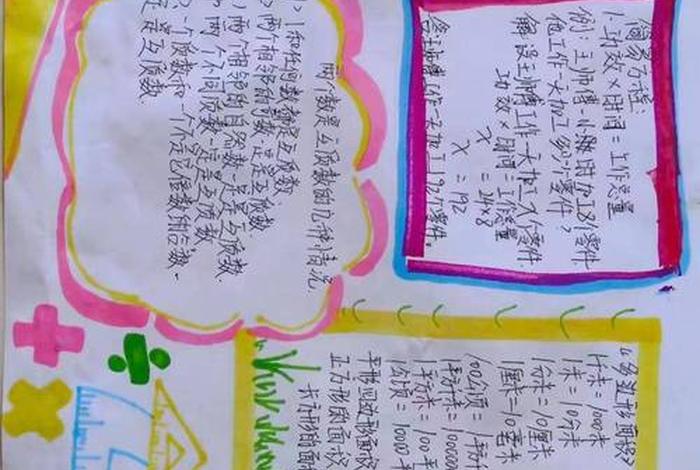 简易方程:
1、功效×时间=工作总量
例:王师傅一小时加工8个零件
他工作一天加工多少个零件?
解:设王师傅工作一天加工x个零件.
功效×时间=工作总量
x = 24×8
x = 192
答:王师傅工作一天加工192个零件。
两个数是互质数的几种情况.
1和任何数都是互质数.
两个相邻的奇数一定是互质数.
两个相邻的自然数一定是互质数.
两个不同质数一定是互质数
一个质数和一个不是它倍数的合数,
定是互质数.
多边形面积
1千米=1000米
1米=10分米
1分米=10厘米
1厘米=10毫米
100公顷=1平方
1平方千米=
1平方米=100平
1公顷=10000平
平行四边形面积
正方形的面积
长方形的面积